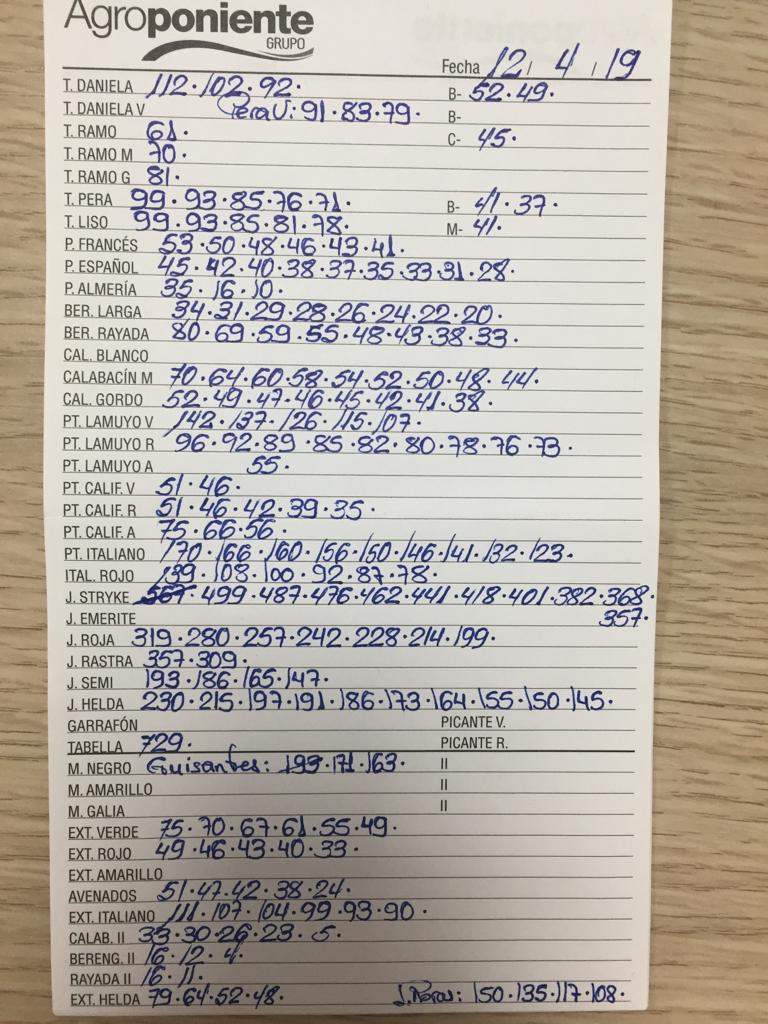 Agroponiente
GRUPO
Fecha 12 / 4 / 19
T. DANIELA 112 · 102 · 92 · B- 52 · 49 ·
T. DANIELA V Pera V: 91 · 83 · 79 · B-
T. RAMO 61 · C- 45 ·
T. RAMO M 70 ·
T. RAMO G 81 ·
T. PERA 99 · 93 · 85 · 76 · 71 · B- 41 · 37 ·
T. LISO 99 · 93 · 85 · 81 · 78 · M- 41 ·
P. FRANCÉS 53 · 50 · 48 · 46 · 43 · 41 ·
P. ESPAÑOL 45 · 42 · 40 · 38 · 37 · 35 · 33 · 31 · 28 ·
P. ALMERÍA 35 · 16 · 10 ·
BER. LARGA 34 · 31 · 29 · 28 · 26 · 24 · 22 · 20 ·
BER. RAYADA 80 · 69 · 59 · 55 · 48 · 43 · 38 · 33 ·
CAL. BLANCO
CALABACÍN M 70 · 64 · 60 · 58 · 54 · 52 · 50 · 48 · 44 ·
CAL. GORDO 52 · 49 · 47 · 46 · 45 · 42 · 41 · 38 ·
PT. LAMUYO V 142 · 137 · 126 · 115 · 107 ·
PT. LAMUYO R 96 · 92 · 89 · 85 · 82 · 80 · 78 · 76 · 73 ·
PT. LAMUYO A 55 ·
PT. CALIF. V 51 · 46 ·
PT. CALIF. R 51 · 46 · 42 · 39 · 35 ·
PT. CALIF. A 75 · 66 · 56 ·
PT. ITALIANO 170 · 166 · 160 · 156 · 150 · 146 · 141 · 132 · 123 ·
ITAL. ROJO 139 · 108 · 100 · 92 · 87 · 78 ·
J. STRYKE 567 · 499 · 487 · 476 · 462 · 441 · 418 · 401 · 382 · 368 ·
J. EMERITE 357 ·
J. ROJA 319 · 280 · 257 · 242 · 228 · 214 · 199 ·
J. RASTRA 357 · 309 ·
J. SEMI 193 · 186 · 165 · 147 ·
J. HELDA 230 · 215 · 197 · 191 · 186 · 173 · 164 · 155 · 150 · 145 ·
GARRAFÓN PICANTE V.
TABELLA 729 · PICANTE R.
M. NEGRO Guisantes: 193 · 171 · 163 · II
M. AMARILLO II
M. GALIA II
EXT. VERDE 75 · 70 · 67 · 61 · 55 · 49 ·
EXT. ROJO 49 · 46 · 43 · 40 · 33 ·
EXT. AMARILLO
AVENADOS 51 · 47 · 42 · 38 · 24 ·
EXT. ITALIANO 111 · 107 · 104 · 99 · 93 · 90 ·
CALAB. II 33 · 30 · 26 · 23 · 5 ·
BERENG. II 16 · 12 · 4 ·
RAYADA II 16 · 11 ·
EXT. HELDA 79 · 64 · 52 · 48 · 150 · 135 · 117 · 108 ·